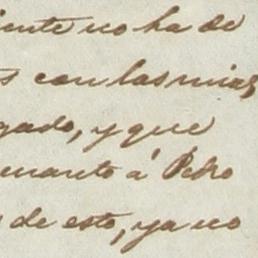 iente no ha de
s con las mias,
gado, y que
cuanto á Pedro
s de esto, ya no